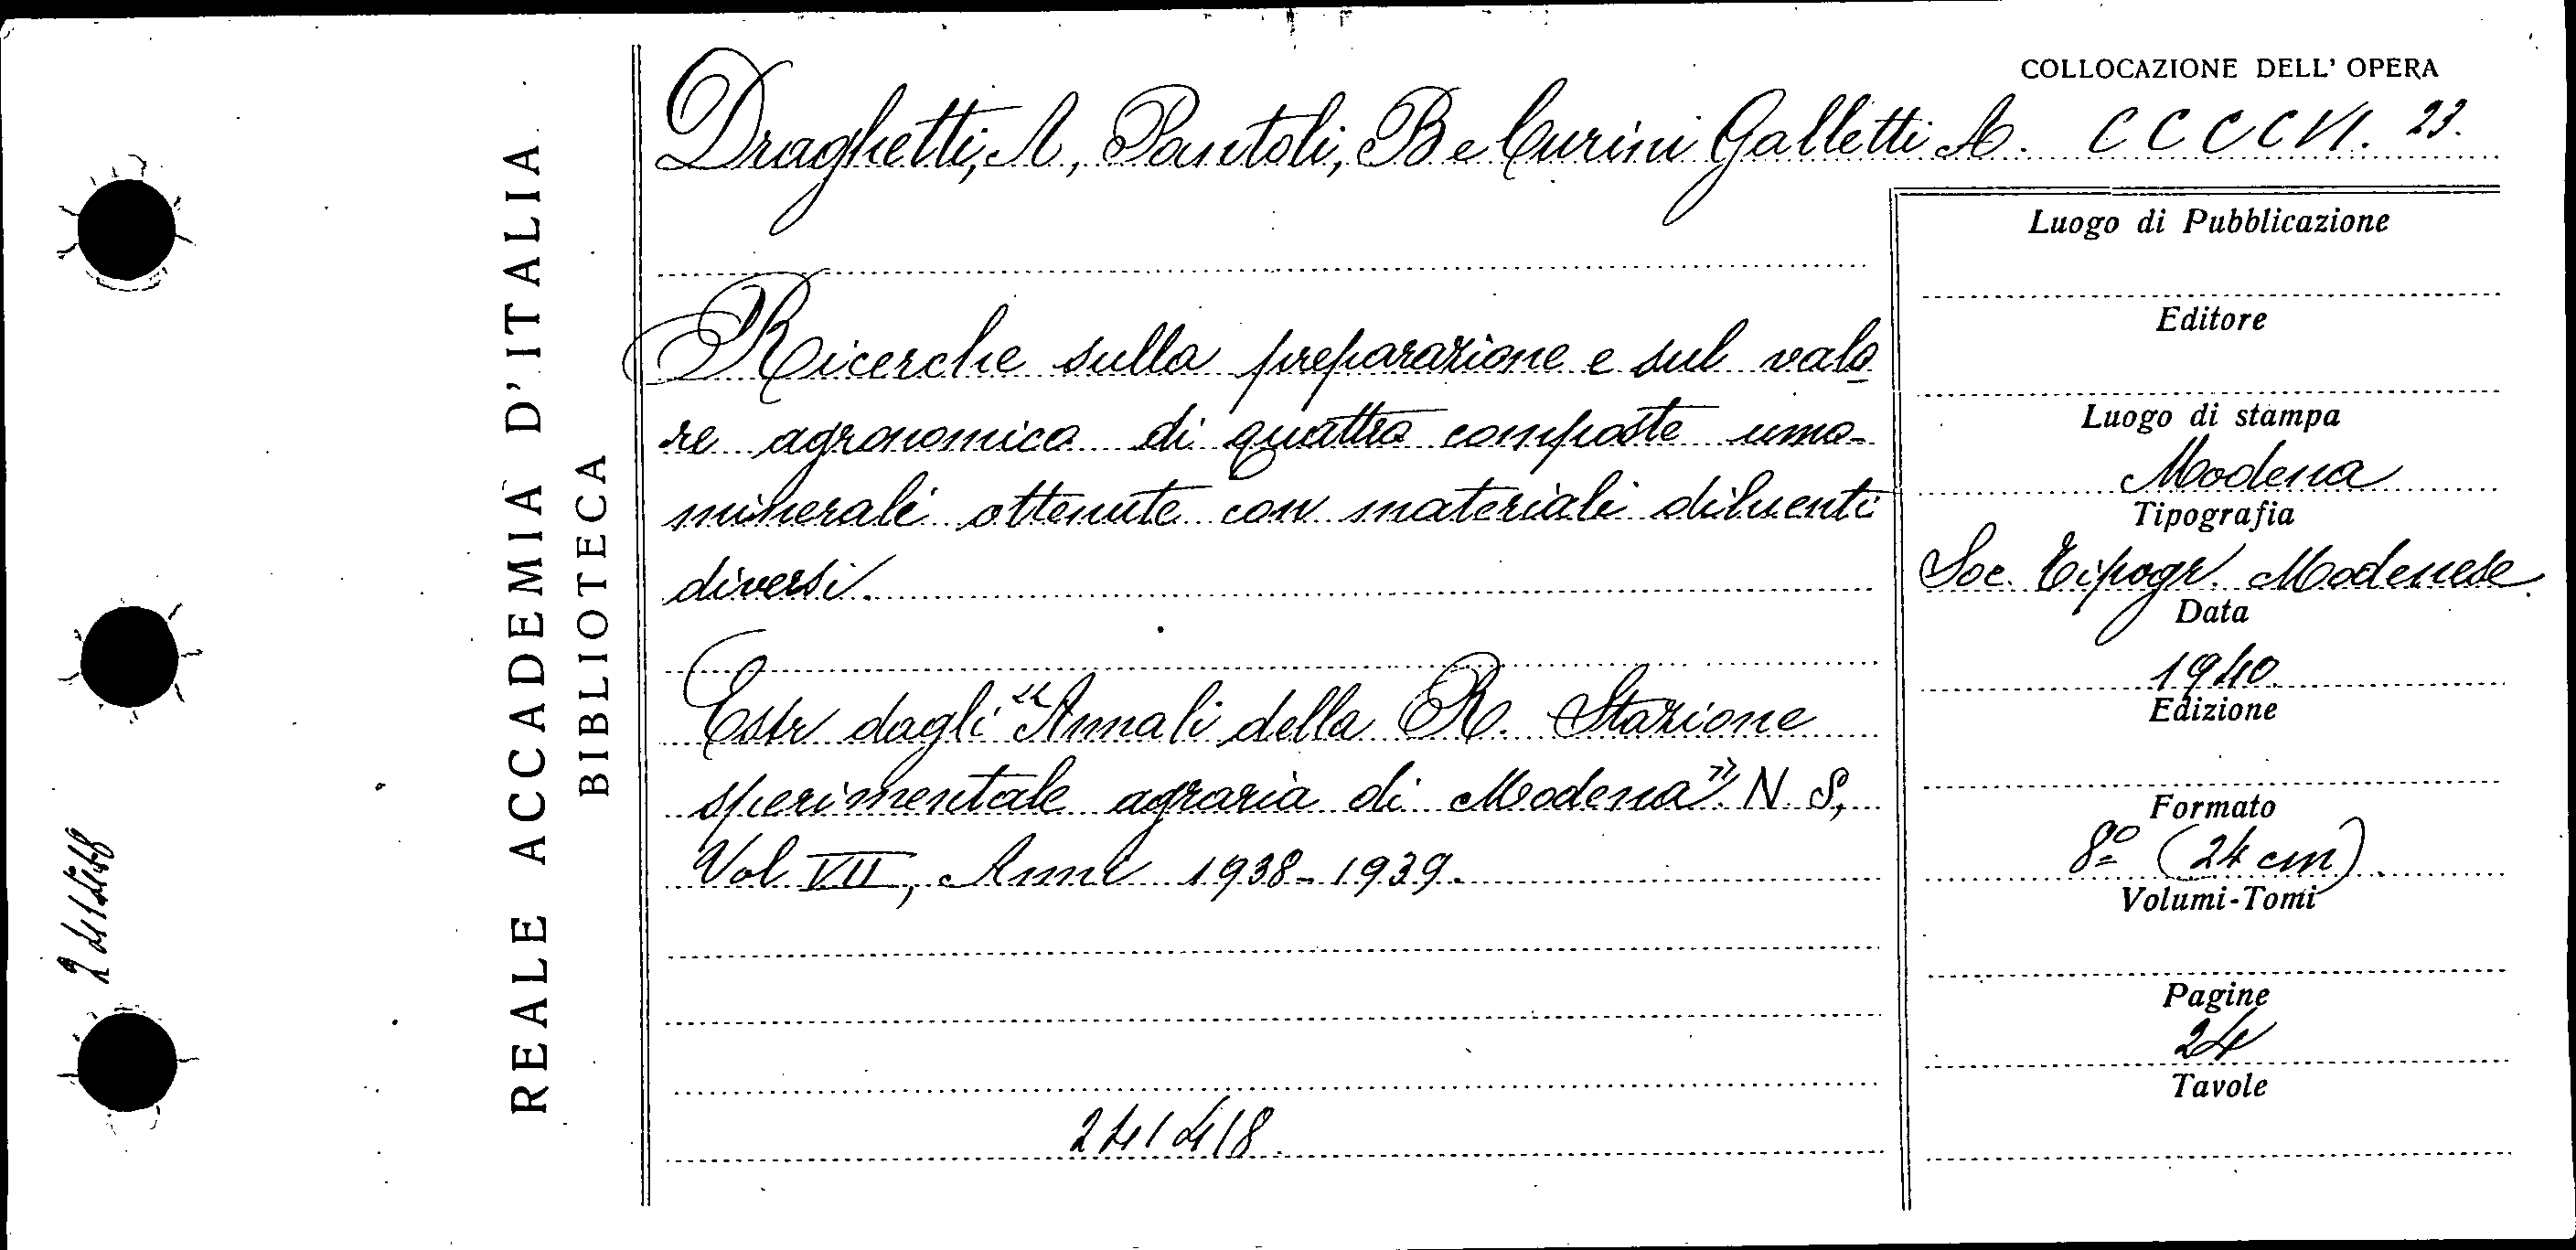 REALE ACCADEMIA D'ITALIA
BIBLIOTECA
COLLOCAZIONE DELL' OPERA
Draghetti, A, Pantoli, B e Curini Galletti A. CCCCVI. 23.
Ricerche sulla preparazione e sul valo
re agronomico di quattro composte umo-
minerali ottenute con materiali diluenti
diversi.
Estr dagli "Annali della R. Stazione
sperimentale agraria di Modena" N. S,
Vol VII, Anni 1938-1939.
241418
Luogo di Pubblicazione
Editore
Luogo di stampa
Modena
Tipografia
Soc. Tipogr. Modenese
Data
1940
Edizione
Formato
8º (24 cm).
Volumi-Tomi
Pagine
24
Tavole